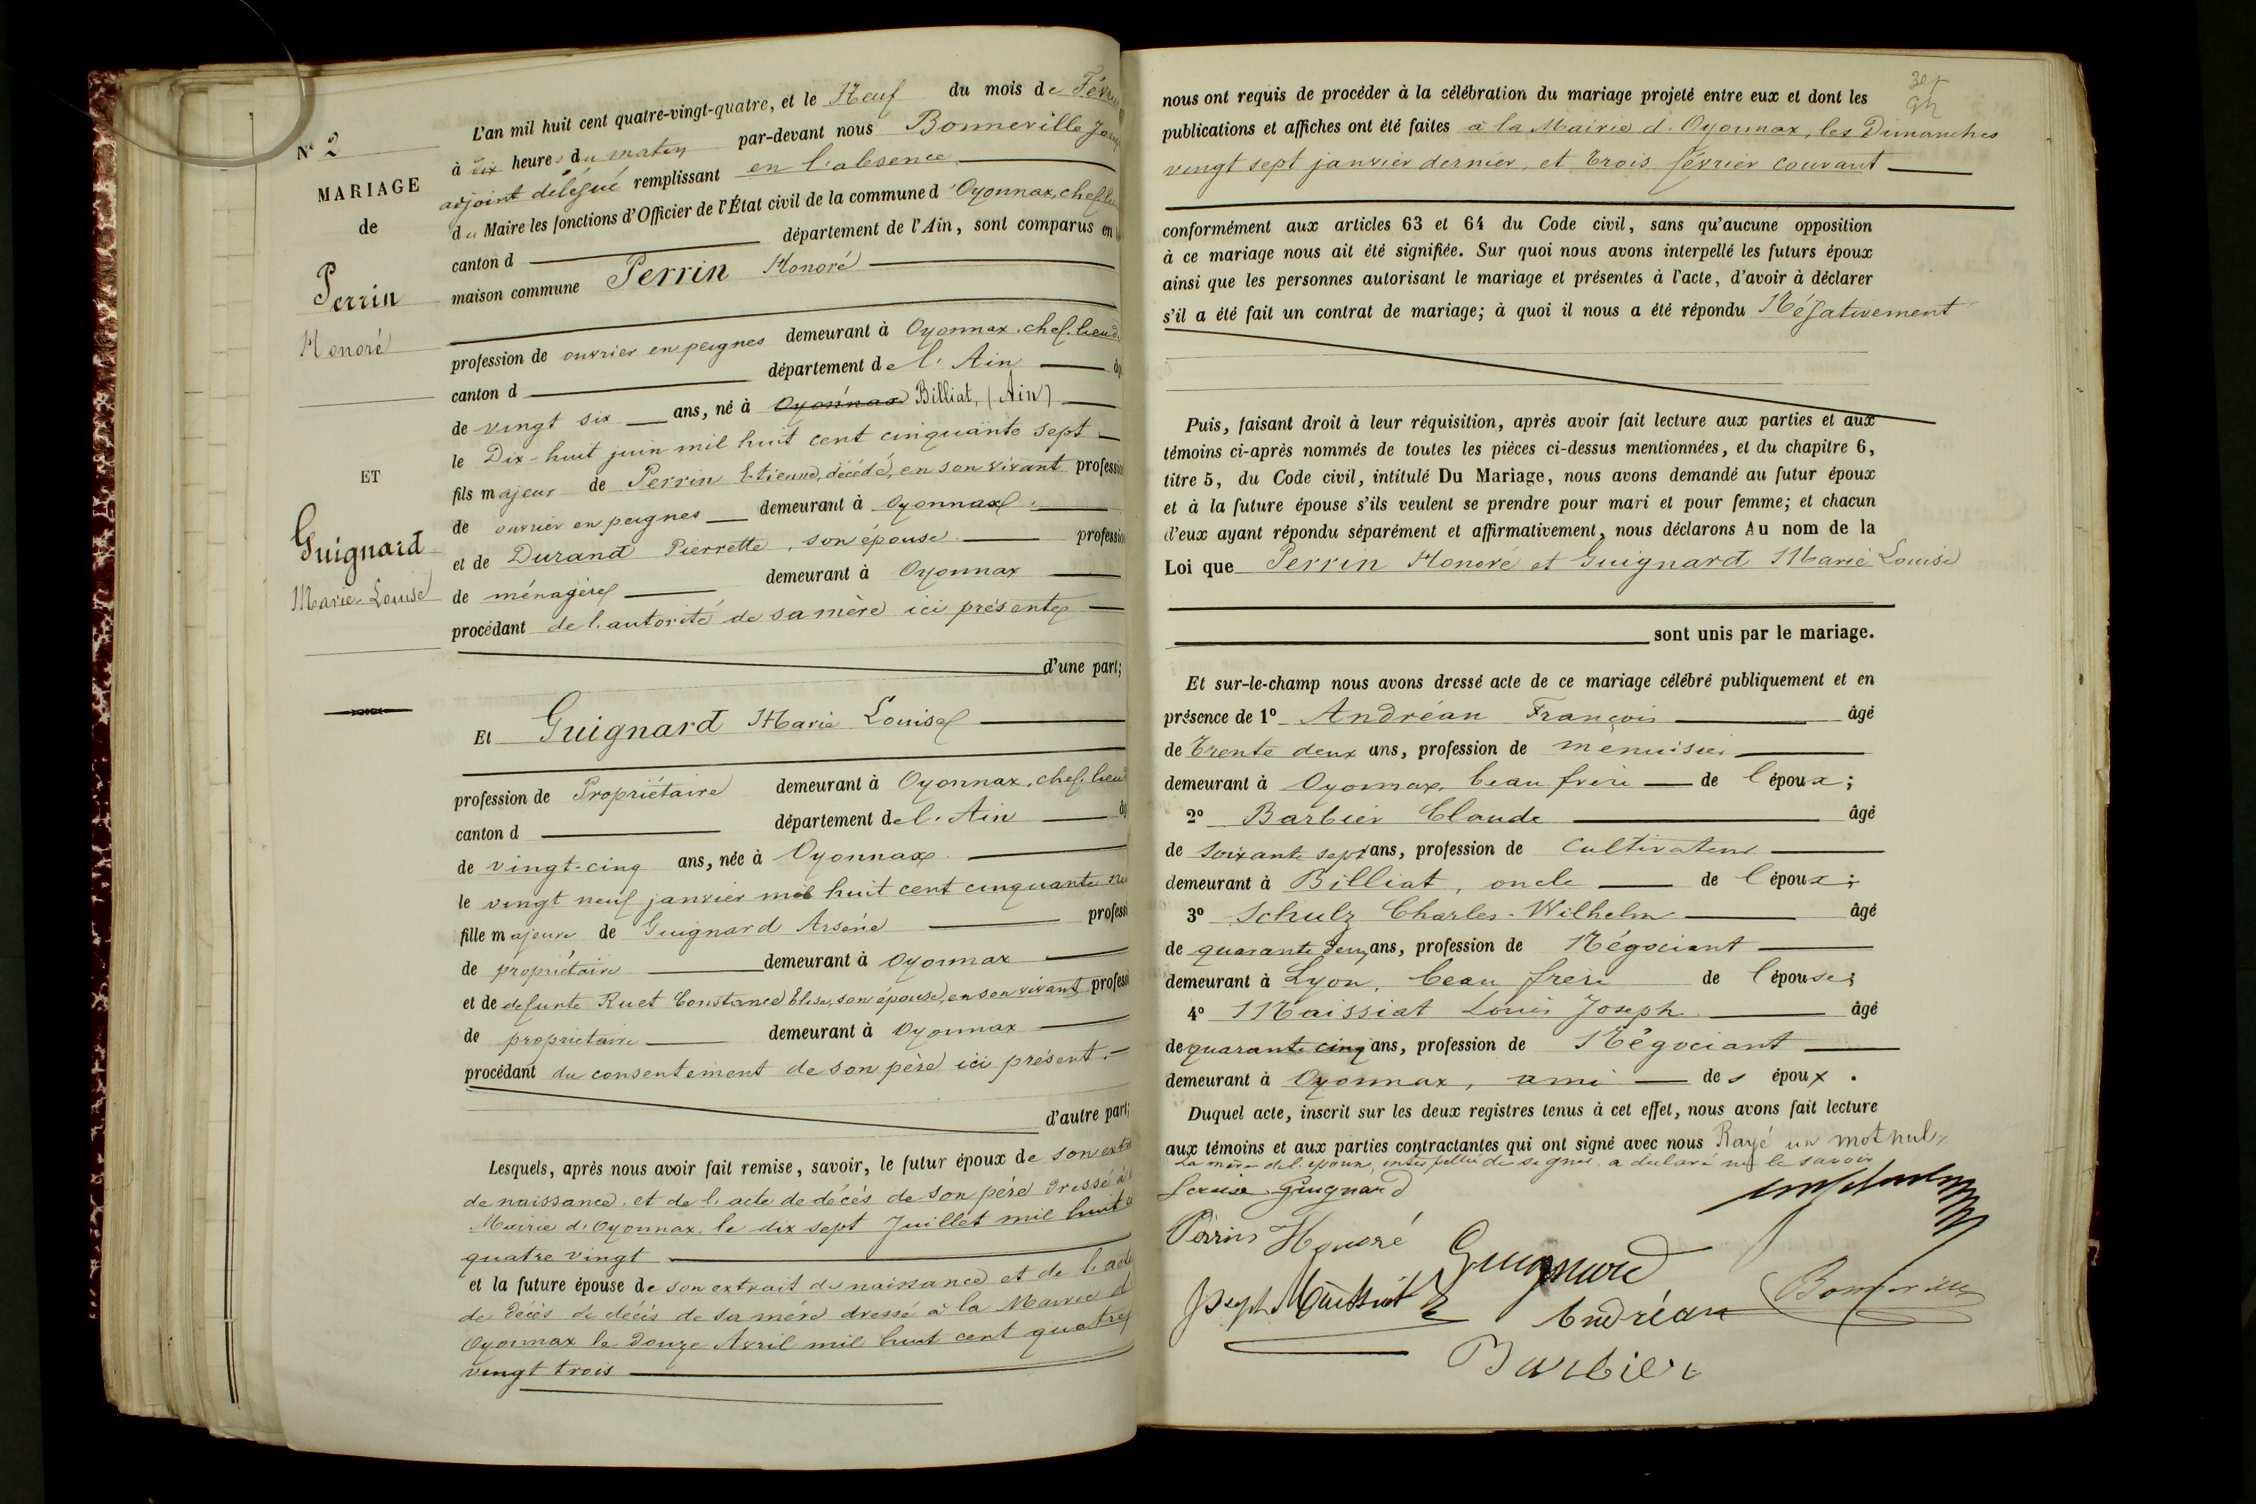 N° 2
MARIAGE
de
Perrin
Honoré
ET
Guignard
Marie Louise
L'an mil huit cent quatre-vingt-quatre, et le Neuf du mois de Févri
à dix heures du matin par-devant nous Bonneville
adjoint délégué remplissant en l'absence
du Maire les fonctions d'Officier de l'État civil de la commune d'Oyonnax, chef lieu
canton d département de l'Ain, sont comparus en
maison commune Perrin Honoré
profession de ouvrier en peignes demeurant à Oyonnax, chef lieu d
canton d département de l'Ain
de vingt six ans, né à Oyonnax Billiat, (Ain)
le Dix-huit juin mil huit cent cinquante sept
fils majeur de Perrin Etienne, décédé, en son vivant professio
de ouvrier en peignes demeurant à Oyonnax
et de Durand Pierrette, son épouse professio
de ménagère demeurant à Oyonnax
procédant de l'autorité de sa mère ici présente
d'une part;
Et Guignard Marie Louise
profession de Propriétaire demeurant à Oyonnax, chef lieu
canton d département de l'Ain
de vingt-cinq ans, née à Oyonnax
le vingt neuf janvier mil huit cent cinquante
fille majeure de Guignard Arsène professi
de propriétaire demeurant à Oyonnax
et de défunte Ruet Constance Elise, son épouse, en son vivant professi
de propriétaire demeurant à Oyonnax
procédant du consentement de son père ici présent.
d'autre part;
Lesquels, après nous avoir fait remise, savoir, le futur époux de son extr
de naissance, et de l'acte de décès de son père dressé à
Mairie d'Oyonnax, le dix sept Juillet mil huit
quatre vingt
et la future épouse de son extrait de naissance et de l'acte
de décès de décès de sa mère dressé à la Mairie d
Oyonnax le Douze Avril mil huit cent quatre
vingt trois
nous ont requis de procéder à la célébration du mariage projeté entre eux et dont les
publications et affiches ont été faites à la Mairie d'Oyonnax, les Dimanches
vingt sept janvier dernier, et trois février courant
conformément aux articles 63 et 64 du Code civil, sans qu'aucune opposition
à ce mariage nous ait été signifiée. Sur quoi nous avons interpellé les futurs époux
ainsi que les personnes autorisant le mariage et présentes à l'acte, d'avoir à déclarer
s'il a été fait un contrat de mariage; à quoi il nous a été répondu Négativement
Puis, faisant droit à leur réquisition, après avoir fait lecture aux parties et aux
témoins ci-après nommés de toutes les pièces ci-dessus mentionnées, et du chapitre 6,
titre 5, du Code civil, intitulé Du Mariage, nous avons demandé au futur époux
et à la future épouse s'ils veulent se prendre pour mari et pour femme; et chacun
d'eux ayant répondu séparément et affirmativement, nous déclarons Au nom de la
Loi que Perrin Honoré et Guignard Marie Louise
sont unis par le mariage.
Et sur-le-champ nous avons dressé acte de ce mariage célébré publiquement et en
présence de 1° Andréan François âgé
de trente deux ans, profession de menuisier
demeurant à Oyonnax, beau frère de l'époux;
2° Barbier Claude âgé
de soixante sept ans, profession de Cultivateur
demeurant à Billiat, oncle de l'époux;
3° Schulz Charles-Wilhelm âgé
de quarante deux ans, profession de Négociant
demeurant à Lyon, beau frère de l'épouse;
4° Maissiat Louis Joseph âgé
de quarante cinq ans, profession de Négociant
demeurant à Oyonnax, ami des époux.
Duquel acte, inscrit sur les deux registres tenus à cet effet, nous avons fait lecture
aux témoins et aux parties contractantes qui ont signé avec nous Rayé un mot nul
La mère de l'époux, interpellée de signer a déclaré ne le savoir
Louise Guignard
Perrin Honoré
Guignard
Joseph Maissiat
Andréan
Bonneville
Barbier